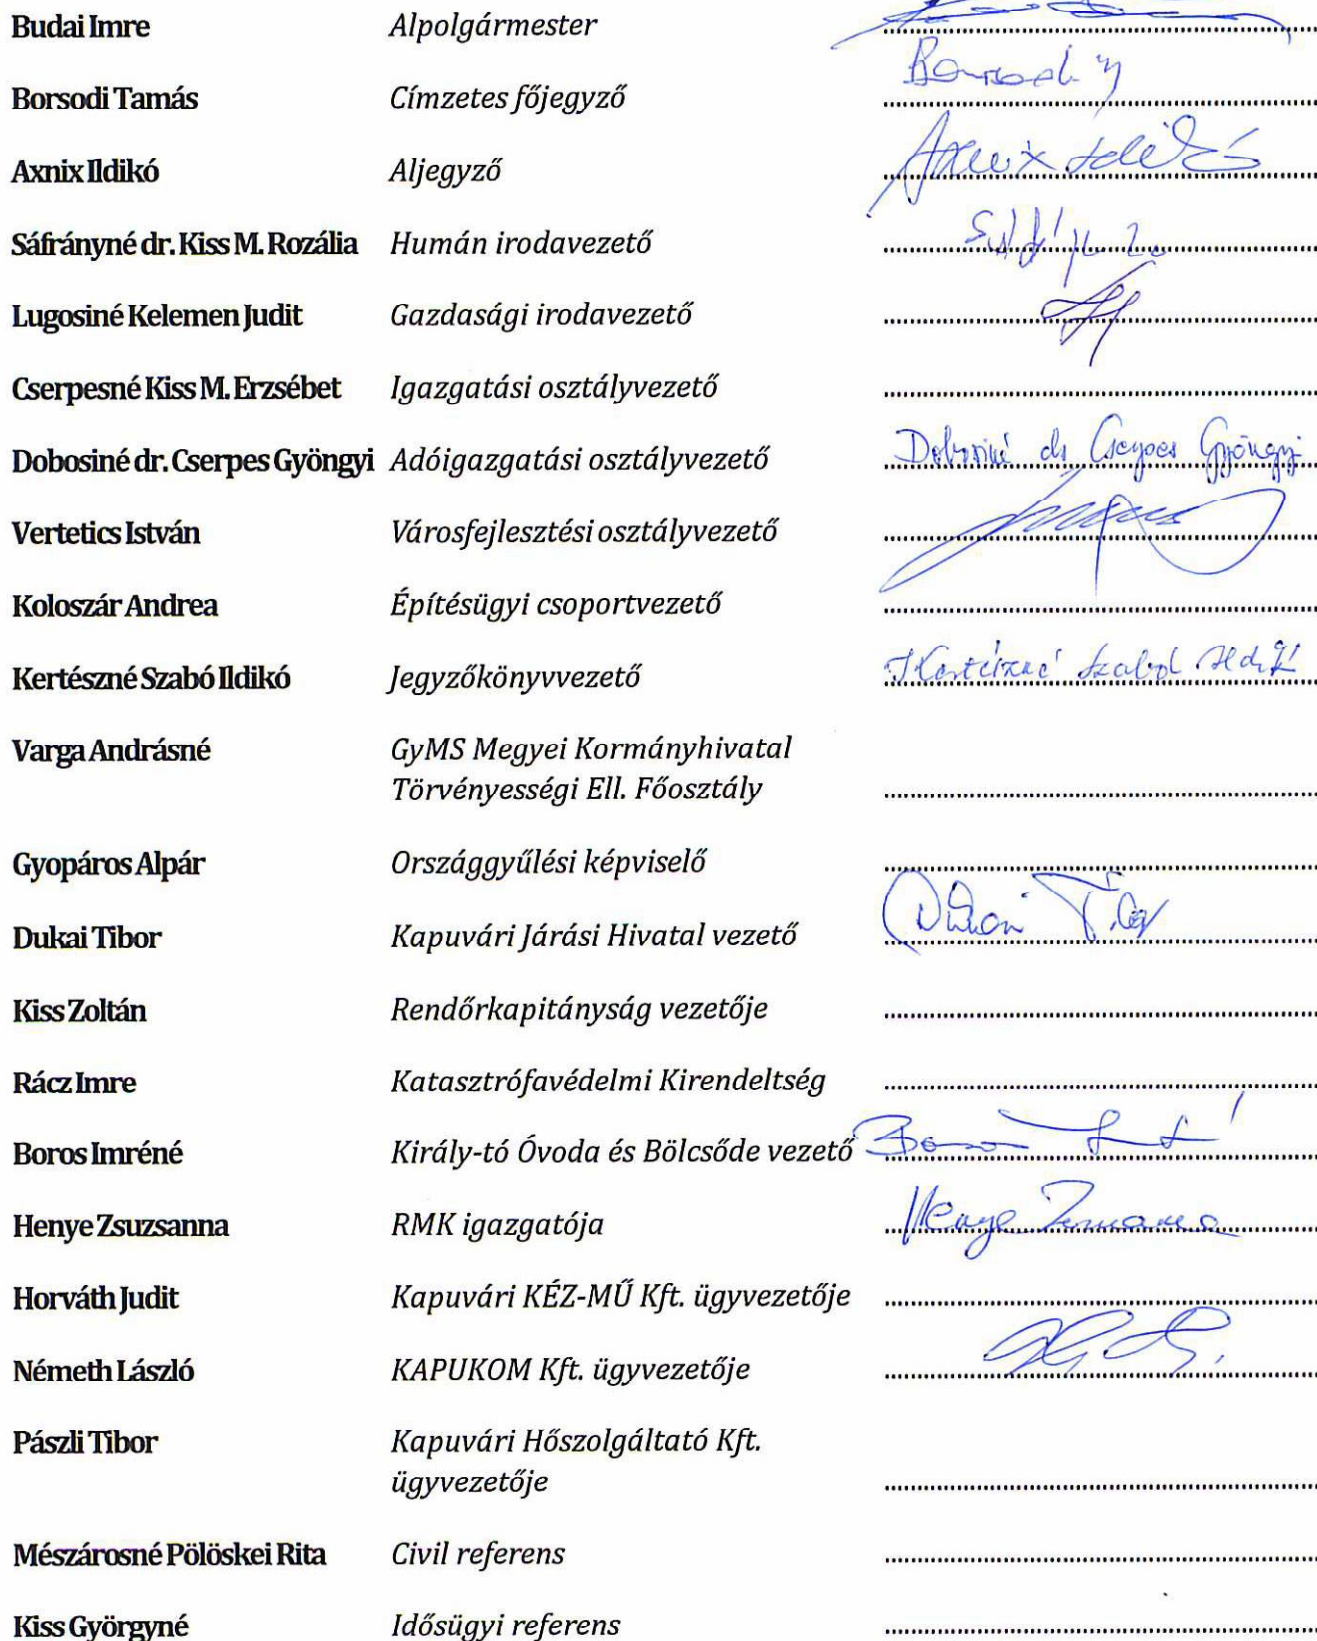 Budai Imre Alpolgármester
Borsodi Tamás Címzetes főjegyző
Axnix Ildikó Aljegyző Axnix Ildikó
Sáfrányné dr. Kiss M. Rozália Humán irodavezető
Lugosiné Kelemen Judit Gazdasági irodavezető
Cserpesné Kiss M. Erzsébet Igazgatási osztályvezető
Dobosiné dr. Cserpes Gyöngyi Adóigazgatási osztályvezető Dobosiné dr Cserpes Gyöngyi
Vertetics István Városfejlesztési osztályvezető
Koloszár Andrea Építésügyi csoportvezető
Kertészné Szabó Ildikó Jegyzőkönyvvezető Kertészné Szabó Ildikó
Varga Andrásné GyMS Megyei Kormányhivatal
Törvényességi Ell. Főosztály
Gyopáros Alpár Országgyűlési képviselő
Dukai Tibor Kapuvári Járási Hivatal vezető Dukai Tibor
Kiss Zoltán Rendőrkapitányság vezetője
Rácz Imre Katasztrófavédelmi Kirendeltség
Boros Imréné Király-tó Óvoda és Bölcsőde vezető
Henye Zsuzsanna RMK igazgatója Henye Zsuzsanna
Horváth Judit Kapuvári KÉZ-MŰ Kft. ügyvezetője
Németh László KAPUKOM Kft. ügyvezetője
Pászli Tibor Kapuvári Hőszolgáltató Kft.
ügyvezetője
Mészárosné Pölöskei Rita Civil referens
Kiss Györgyné Idősügyi referens